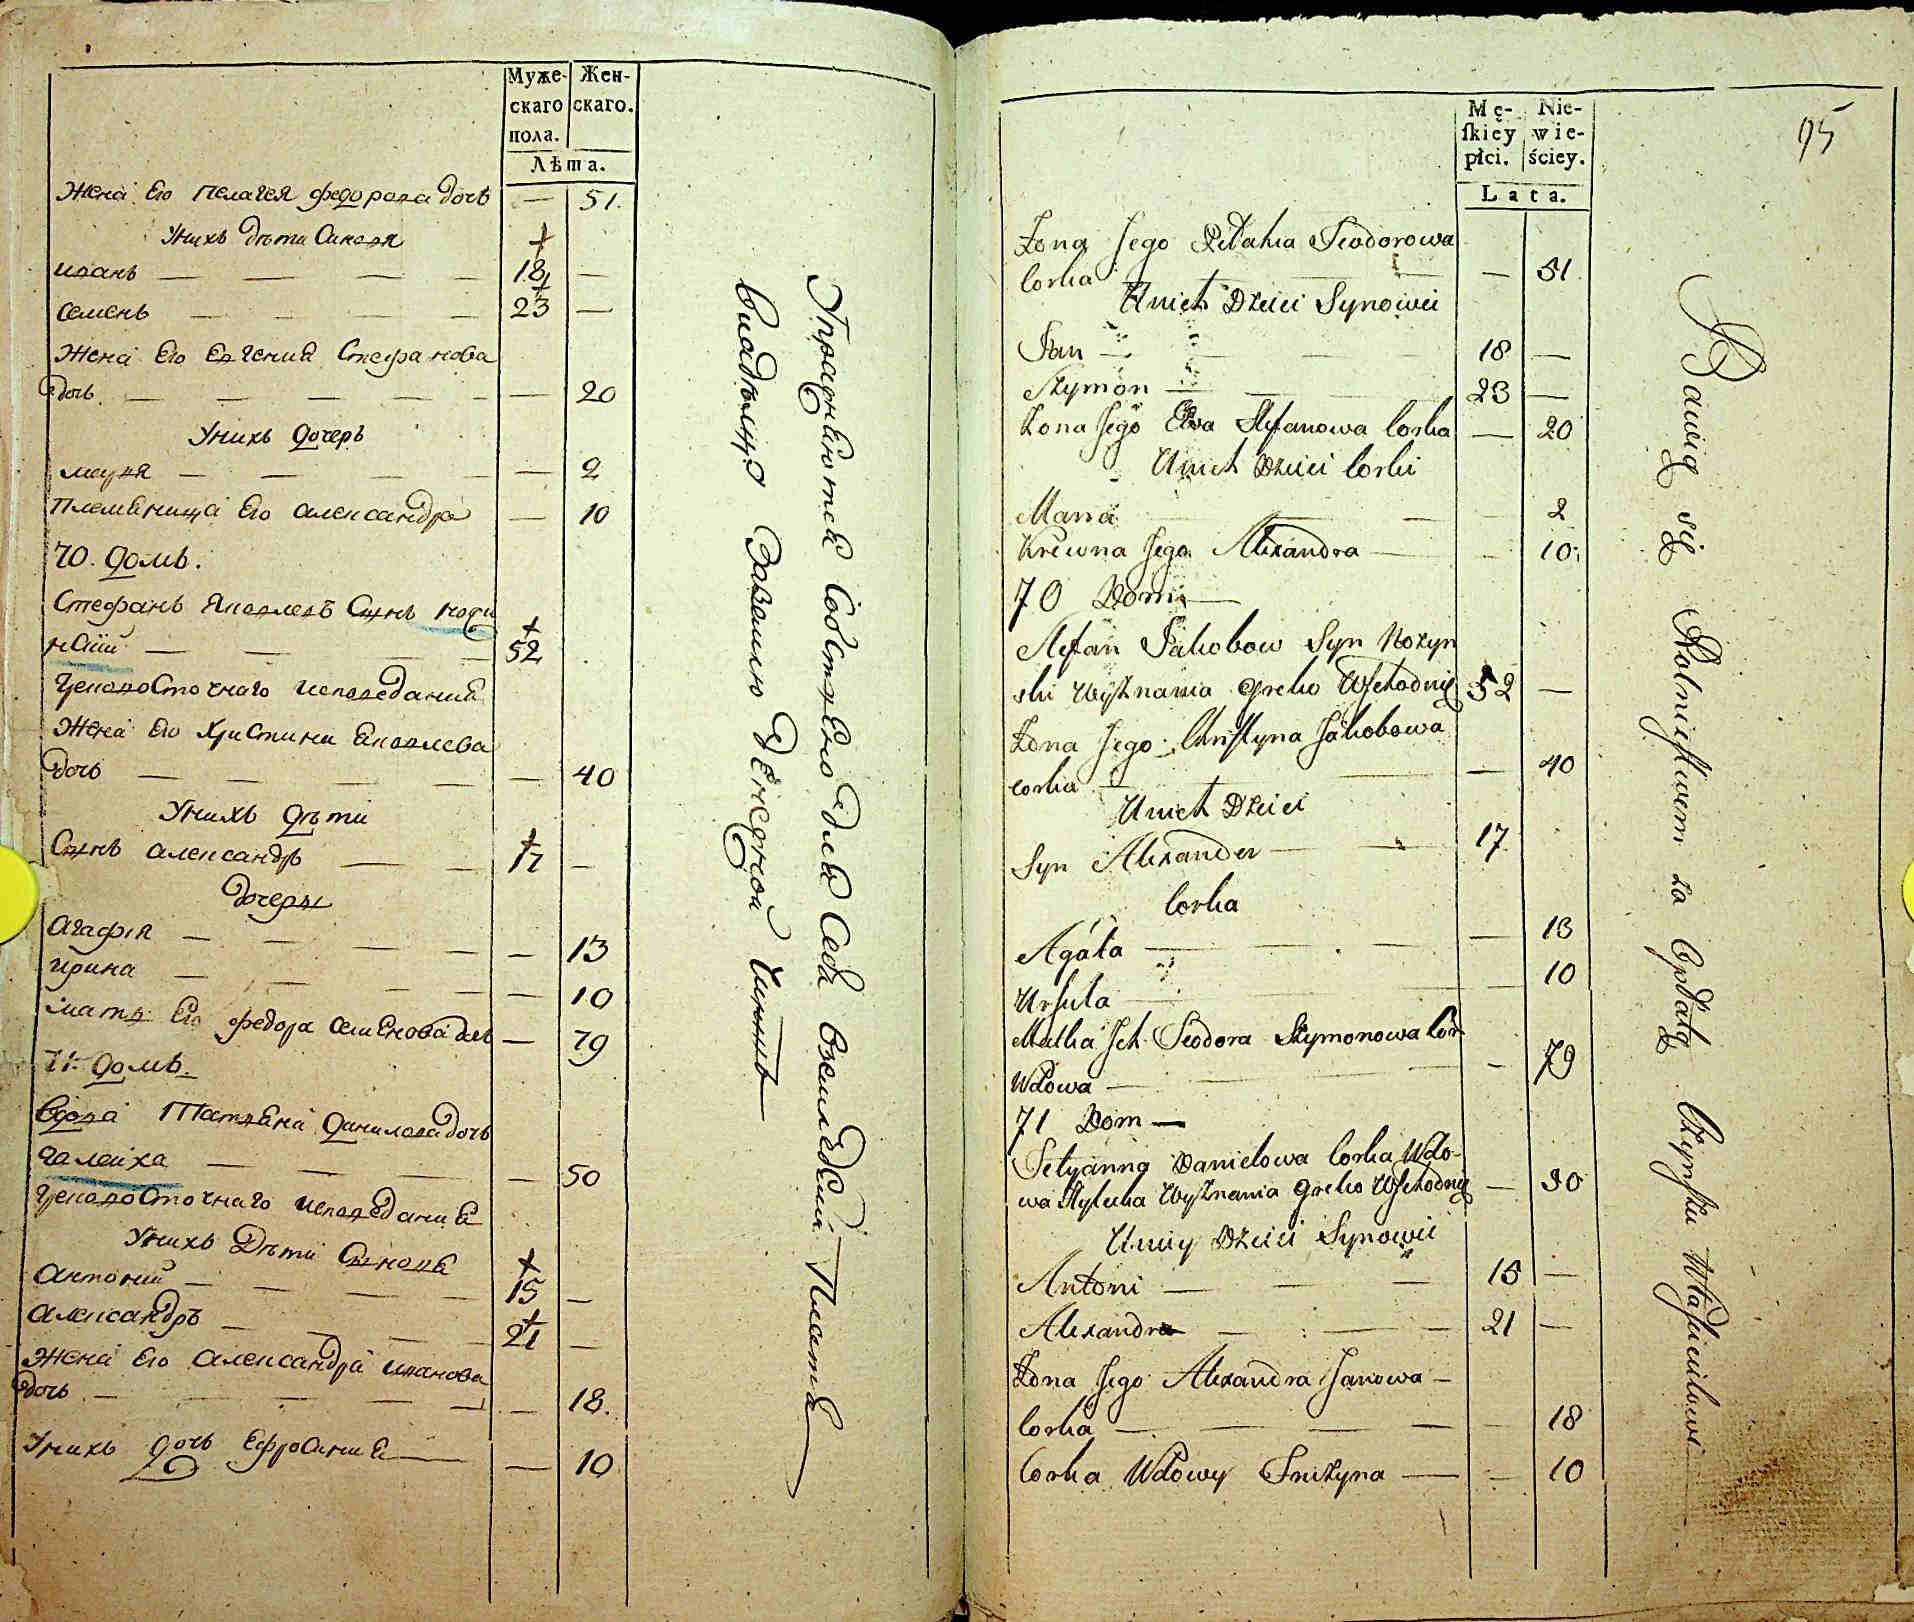 Муже- Жен-
скаго скаго.
пола.
Лѣта.
Жена Его Пелагея Федорова дочь — 51.
Унихъ дѣти Синовя
Иванъ — — — — 18 —
Семенъ — — — — 23 —
Жена Его Евгения Стефанова
дочь. — — — — — — 20
Унихъ дочерь
Марья — — — — — 2
Племеница Его Александра — 10
70. домъ.
Стефанъ Яковлевъ Сынъ Нози
нский — — — 52
Грековосточнаго исповедания
Жена Его Христина Яковлева
дочь — — — — — 40
Унихъ дѣти
Сынъ Александръ — — 17 —
дочеры
Агафия — — — — — 13
Ирина — — — — — 10
Мать Его Федора Семенова дочь — 79
71. домъ.
Вдова Татьяна Данилова дочь
— — — — 50
Грековосточнаго исповедания
Унихъ Дѣти Сынове
Антоний — — — — 15 —
Александръ — — — — 21 —
Жена Его Александра Иванова
дочь — — — — — — 18.
Унихъ дочь Ефросиния — — 10
Упражняются Собственно для Себя Земледѣлия Плата
Владѣлцу Заземлю Денежной Чиншъ
95
Mę- Nie-
ſkiéy wie-
płci. ściey.
Lata.
Żona Jego Pelahia Teodorowa
Corka — — — 51
Unich Dzieci Synowie
Jan — — — 18 —
Szymon — — — 23 —
Żona Jego Ewa Stefanowa Corka — 20
Unich Dzieci Corki
Marya — — — 2
Krewna Jego Alexandra — — 10
70 Dom —
Stefan Jakobow Syn Nozyn
ski Wyznania Greko Wschodnie 52 —
Żona Jego Chrystyna Jakobowa
corka — — — 40
Unich Dzieci
Syn Alexander — — 17
Corka
Agata — — — — 13
Urszula — — — — 10
Matka Ich Teodora Szymonowa Cor.
Wdowa — — — — 79
71 Dom —
Tetyanna Danielowa Corka Wdo-
wa Wyznania Greko Wschodnie — 50
Uniey Dzieci Synowie
Antoni — — — 15 —
Alexandra — — — 21 —
Żona Jego Alexandra Janowa —
Corka — — — — 18
Corka Wdowy — — 10
Bawią się Rolnictwem za Opłatą Czynszu Właścicielowi